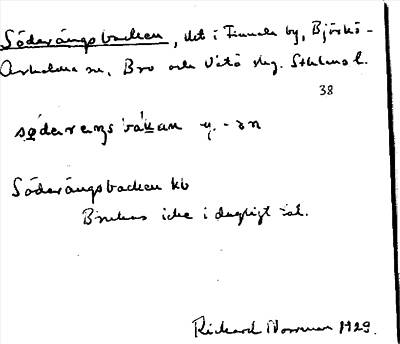 Söderängsbacken, det i Finnala by, Björkö-
Arholma sn, Bro och Vätö skg. Sthlms l.
38
södəreŋsbakan y. -ən
Söderängsbacken kb
Brukas icke i dagligt tal.
Rickard Norman 1929.